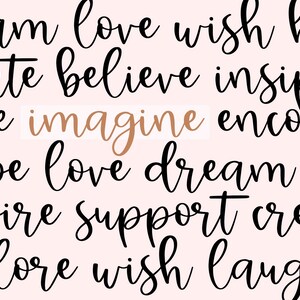 am love wish
te believe insp
e imagine enco
pe love dream
ire support cre
lore wish laug